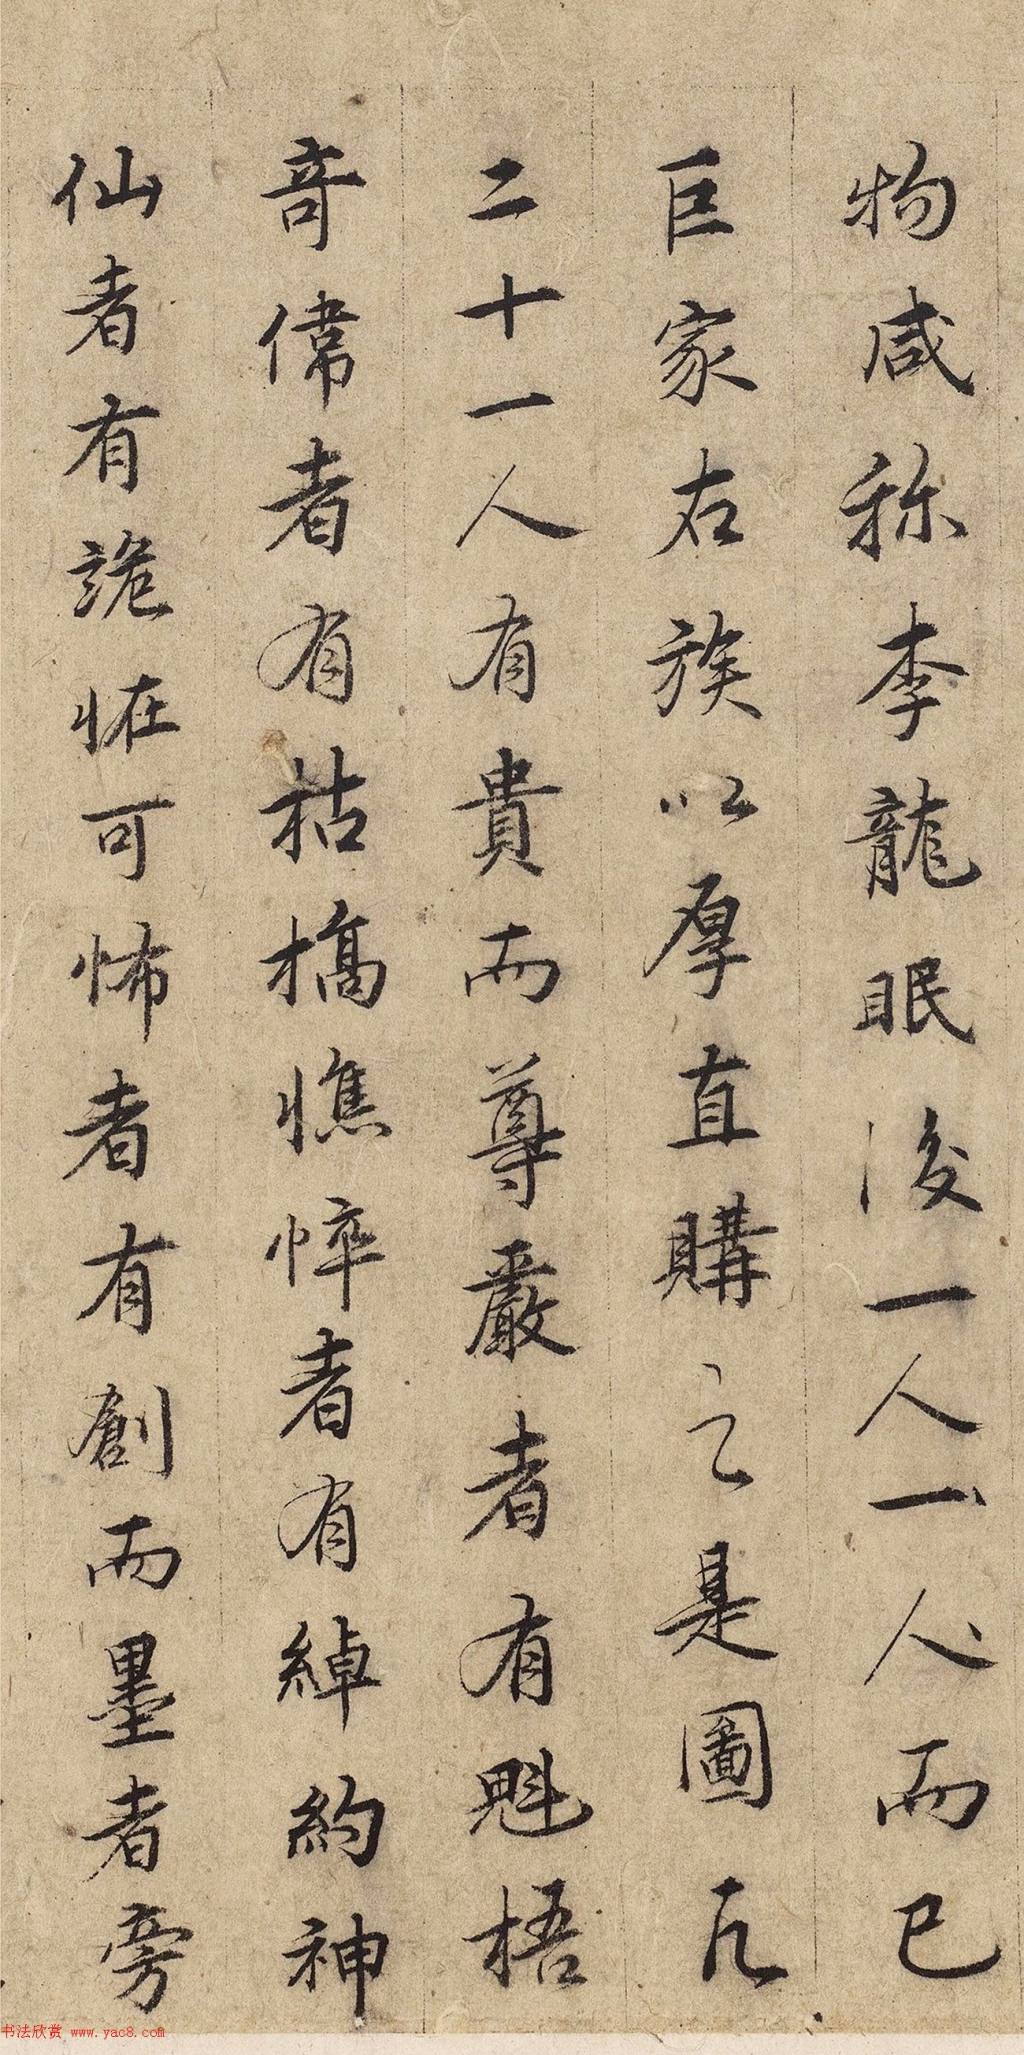 物咸称李龍眠後一人一人而已
巨家右族以厚直購之是圖凡
二十一人有貴而尊嚴者有魁梧
竒偉者有枯槁憔悴者有綽約神
仙者有詭恠可怖者有創而墨者旁
书法欣赏 www.yac8.com